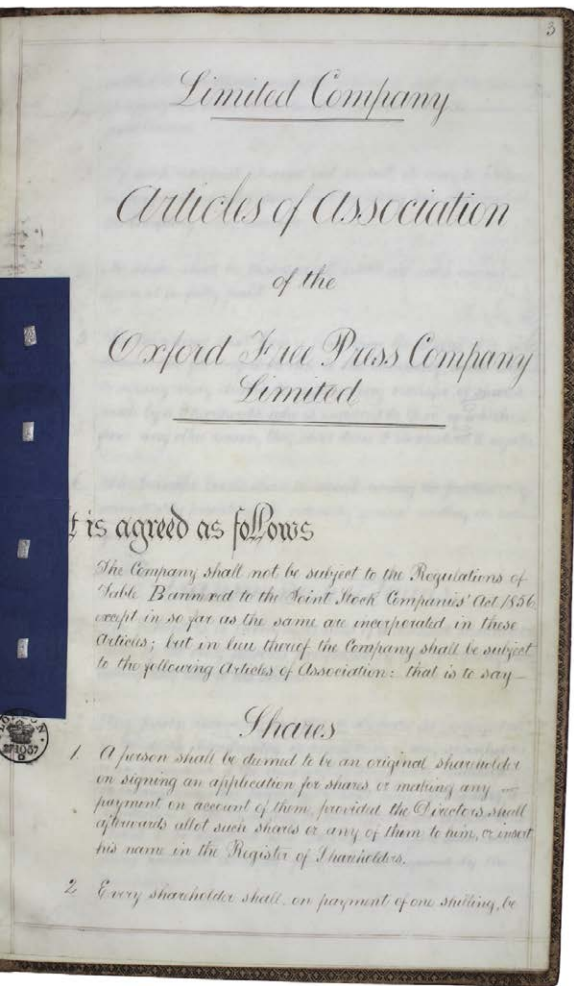 3
Limited Company
Articles of Association
of the
Oxford Free Press Company
Limited
t is agreed as follows
The Company shall not be subject to the Regulations of
Table B annexed to the Joint Stock Companies' Act 1856
except in so far as the same are incorporated in these
Articles; but in lieu thereof the Company shall be subject
to the following Articles of Association: that is to say—
Shares
1. A person shall be deemed to be an original shareholder
on signing an application for shares, or making any —
payment on account of them, provided the Directors shall
afterwards allot such shares or any of them to him, or insert
his name in the Register of Shareholders.
2. Every shareholder shall, on payment of one shilling, be
LONDON